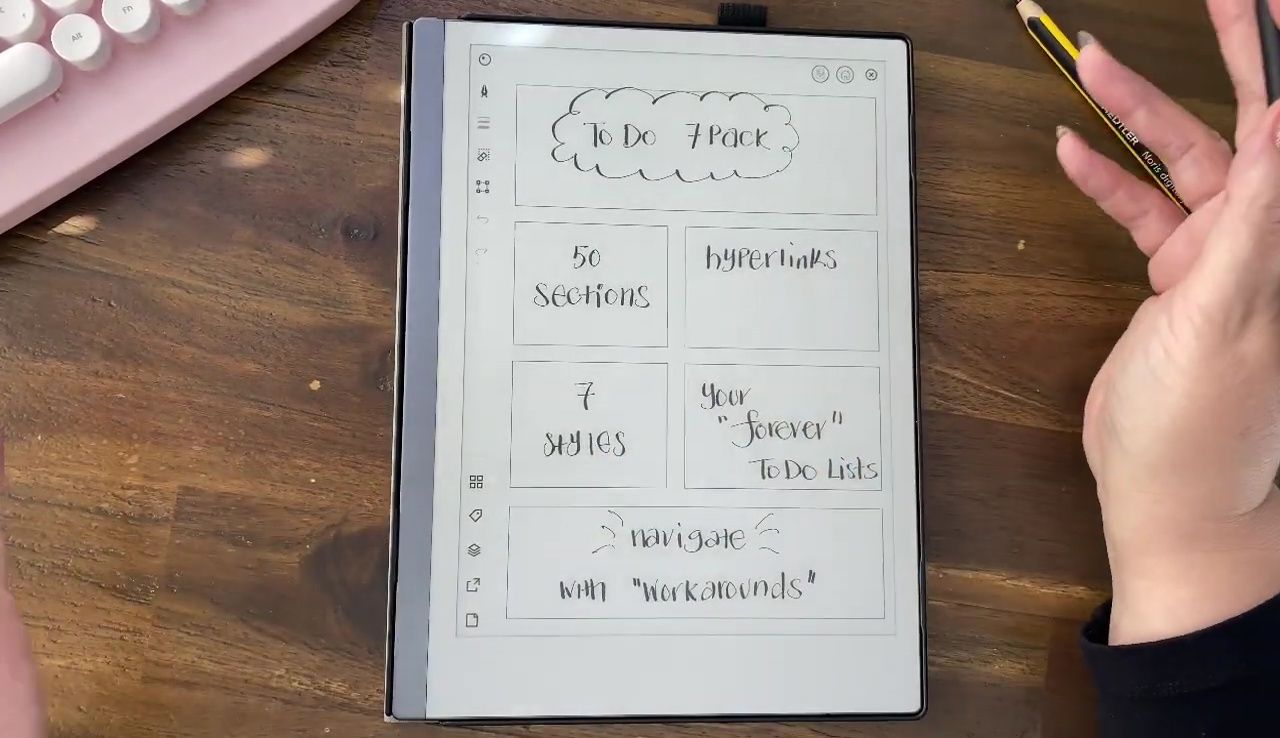 Alt
Fn
To Do 7 Pack
50
sections
hyperlinks
7
styles
Your
"forever"
To Do Lists
navigate
with "workarounds"
Noris digital